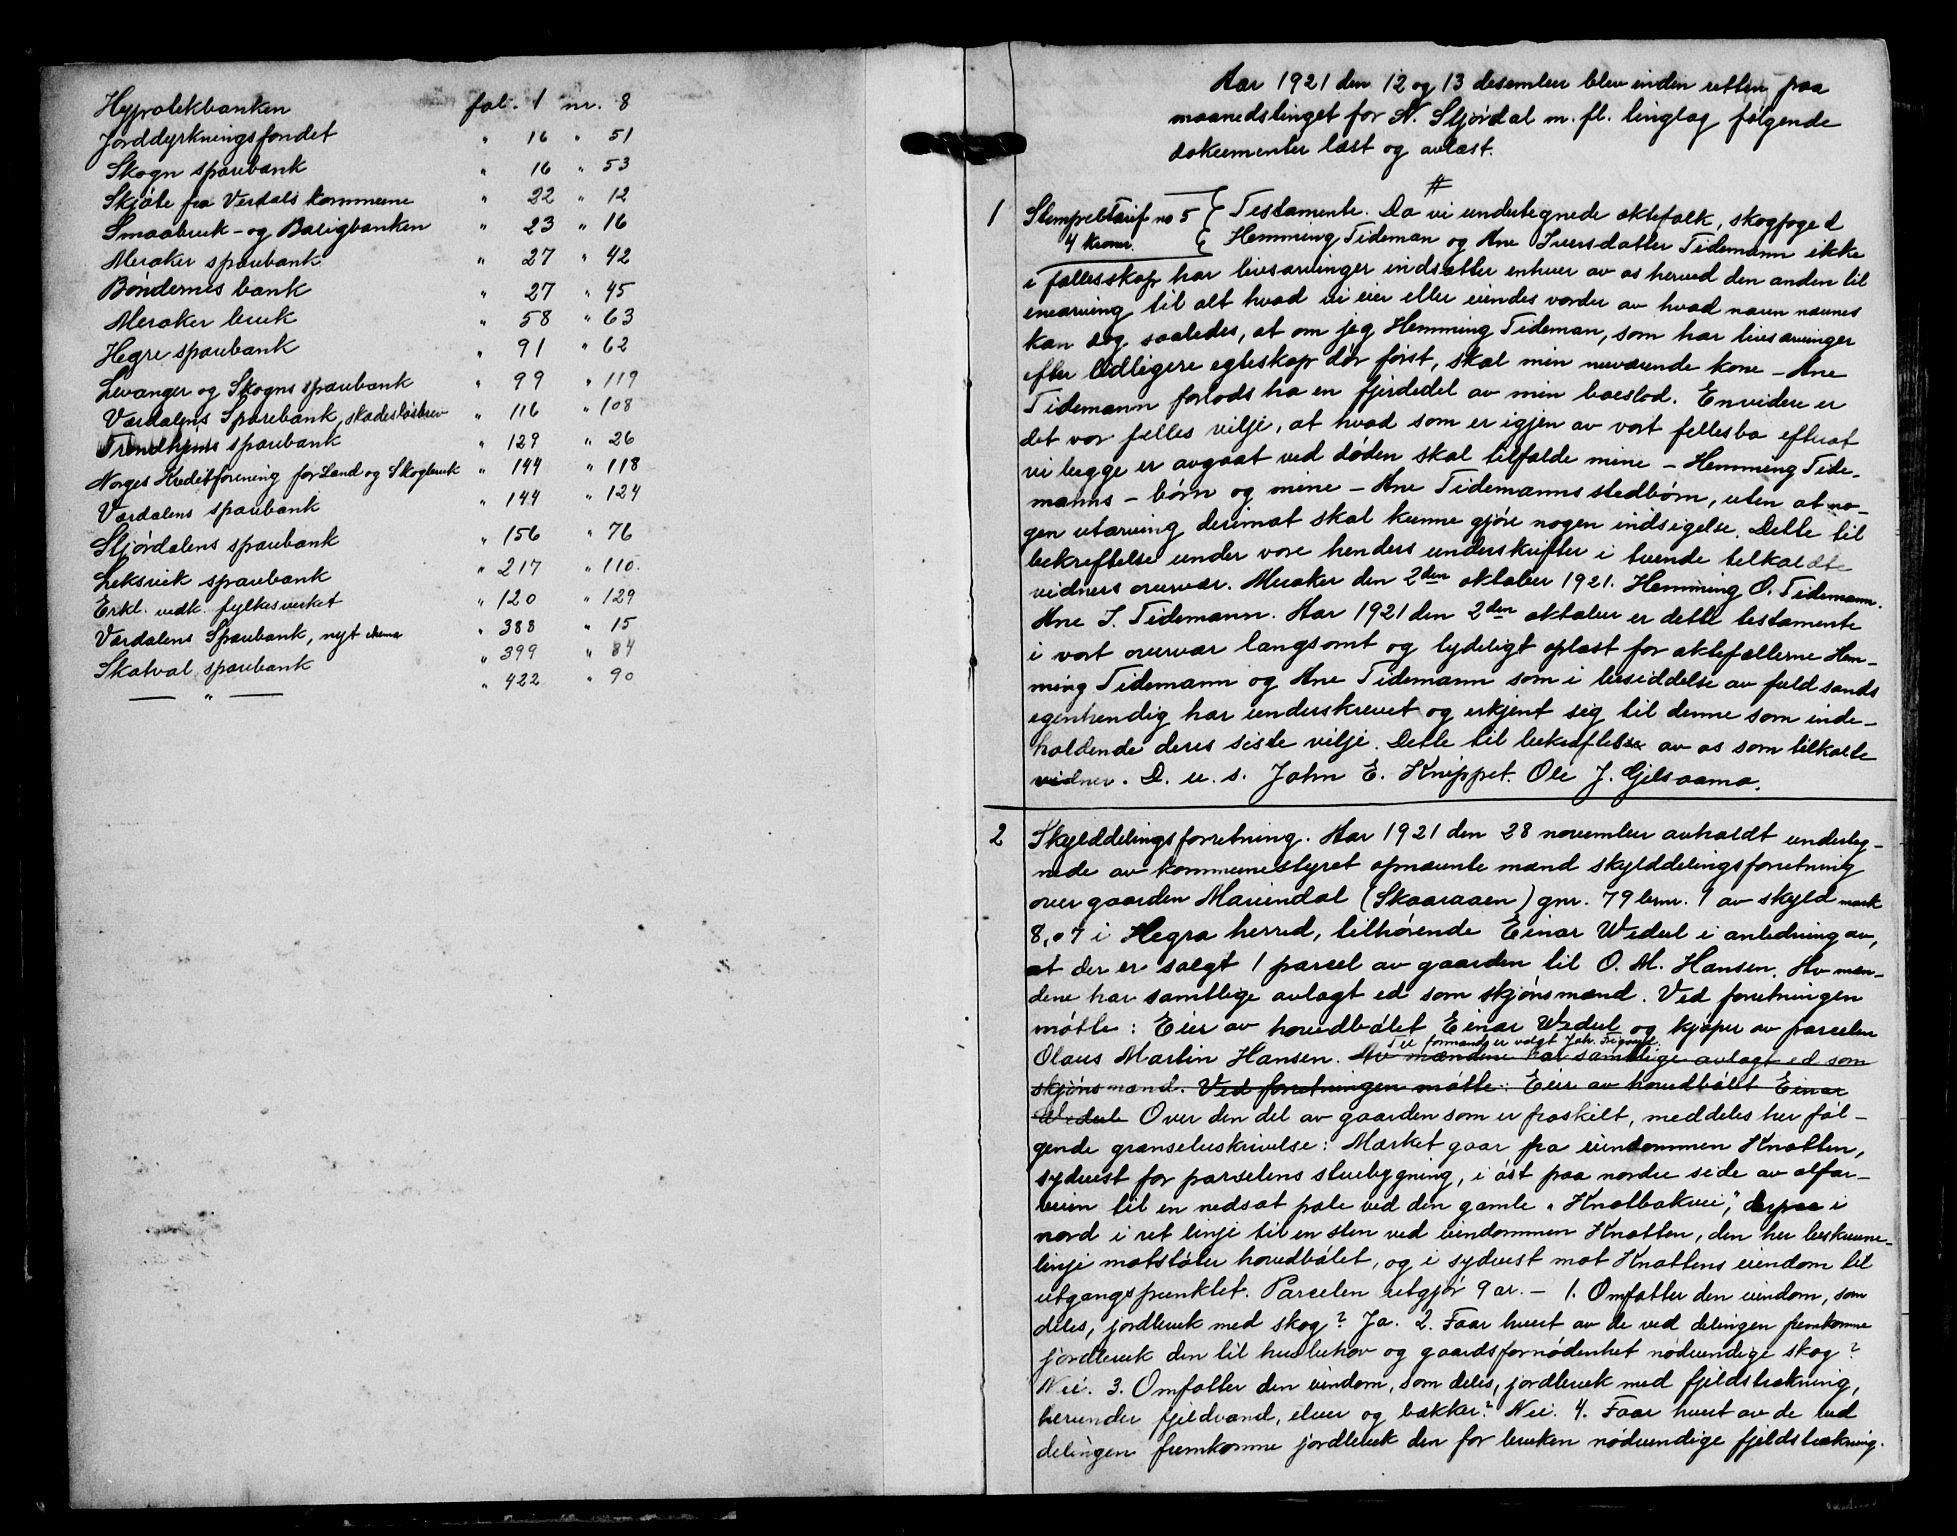 Hypotekbanken fol. 1 nr. 8
Jorddyrkningsfondet " 16 " 51
Skogn sparebank " 16 " 53
Skjøte fra Verdals kommune " 22 " 12
Smaabruk- og Boligbanken " 23 " 16
Meraker sparebank " 27 " 42
Bøndernes bank " 27 " 45
Meraker bruk " 58 " 63
Hegre sparebank " 91 " 62
Levanger og Skogns sparebank " 99 " 119
Værdalens Sparebank, skadesløsbrev " 116 " 108
Trondhjems sparebank " 129 " 26
Norges Kreditforening for Land og Skogbruk " 144 " 118
Værdalens sparebank " 144 " 124
Stjørdalens sparebank " 156 " 76
Leksvik sparebank " 217 " 110.
Erkl. vedk. fylkesveiket " 120 " 129
Værdalens Sparebank, nyt skema " 388 " 15
Skatval sparebank " 399 " 84
— " — " 422 " 90
Aar 1921 den 12 og 13 desember blev inden retten paa
maanedstinget for N. Stjørdal m. fl. tinglag følgende
dokumenter læst og avlæst.
#
1 Stempeltarif no 5 Testamente. Da vi undertegnede æktefolk, skogfoged
4 kroner. Hemming Tideman og Ane Iversdatter Tidemann ikke
i fællesskap har livsarvinger indsætter enhver av os herved den anden til
enearving til alt hvad vi eier eller eiendes vorder av hvad navn nævnes
kan dog saaledes, at om jeg Hemming Tideman, som har livsarvinger
efter tidligere egteskap dør først, skal min nuværende kone - Ane
Tidemann forlods ha en fjerdedel av min boeslod. Envidere er
det vor felles vilje, at hvad som er igjen av vort fellesbo efterat
vi begge er avgaat ved døden skal tilfalde mine - Hemming Tide-
manns - børn og mine - Ane Tidemanns stedbørn, uten at no-
gen utarving derimot skal kunne gjøre nogen indsigelse. Dette til
bekreftelse under vore henders underskrifter i tvende tilkaldte
vidners overvær. Meraker den 2den oktober 1921. Hemming O. Tidemann.
Ane I. Tidemann. Aar 1921 den 2den oktober er dette testamente
i vort overvær langsomt og tydeligt oplæst for æktefællerne Hem-
ming Tidemann og Ane Tidemann som i besiddelse av fuld sands
egenhendig har underskrevet og erkjent sig til denne som inde-
holdende deres siste vilje. Dette til bekreftelse av os som tilkaldte
vidner. D. u. s. John E. Knippet. Ole J. Gilsaamo.
2 Skylddelingsforretning. Aar 1921 den 28 november avholdt underteg-
nede av kommunestyret opnævnte mænd skylddelingsforretning
over gaarden Mariendal (Skaaraaen) gnr. 79 brnr. 1 av skyld mark
8,07 i Hegra herred, tilhørende Einar Wedul i anledning av,
at der er solgt 1 parcel av gaarden til O. M. Hansen. Av mæn-
dene har samtlige avlagt ed som skjønsmænd. Ved forretningen
møtte: Eier av hovedbølet Einar Wedul og kjøper av parcelen
Til formand er valgt Joh. Trøgstad.
Olaus Martin Hansen. Av mændene har samtlige avlagt ed som
skjønsmænd. Ved forretningen møtte: Eier av hovedbølet Einar
Wedul Over den del av gaarden som er fraskilt, meddeles her føl-
gende grænsebeskrivelse: Merket gaar fra eiendommen Knotten,
sydvest for parcelens stuebygning, i øst paa nordre side av alfar-
veien til en nedsat pæle ved den gamle "Knotbakvei", derpaa i
nord i ret linje til en sten ved eiendommen Knotten, den her beskrevne
linje motstøter hovedbølet, og i sydvest mot Knottens eiendom til
utgangspunktet. Parcelen utgjør 9 ar. - 1. Omfatter den eiendom, som
deles, jordbruk med skog? Ja. 2. Faar hvert av de ved delingen fremkomne
jordbruk den til husbehov og gaardsfornødenhet nødvendige skog?
Nei. 3. Omfatter den eiendom, som deles, jordbruk med fjeldstrækning,
herunder fjeldvand, elver og bækker? Nei. 4. Faar hvert av de ved
delingen fremkomne jordbruk den for bruken nødvendige fjeldstrækning.